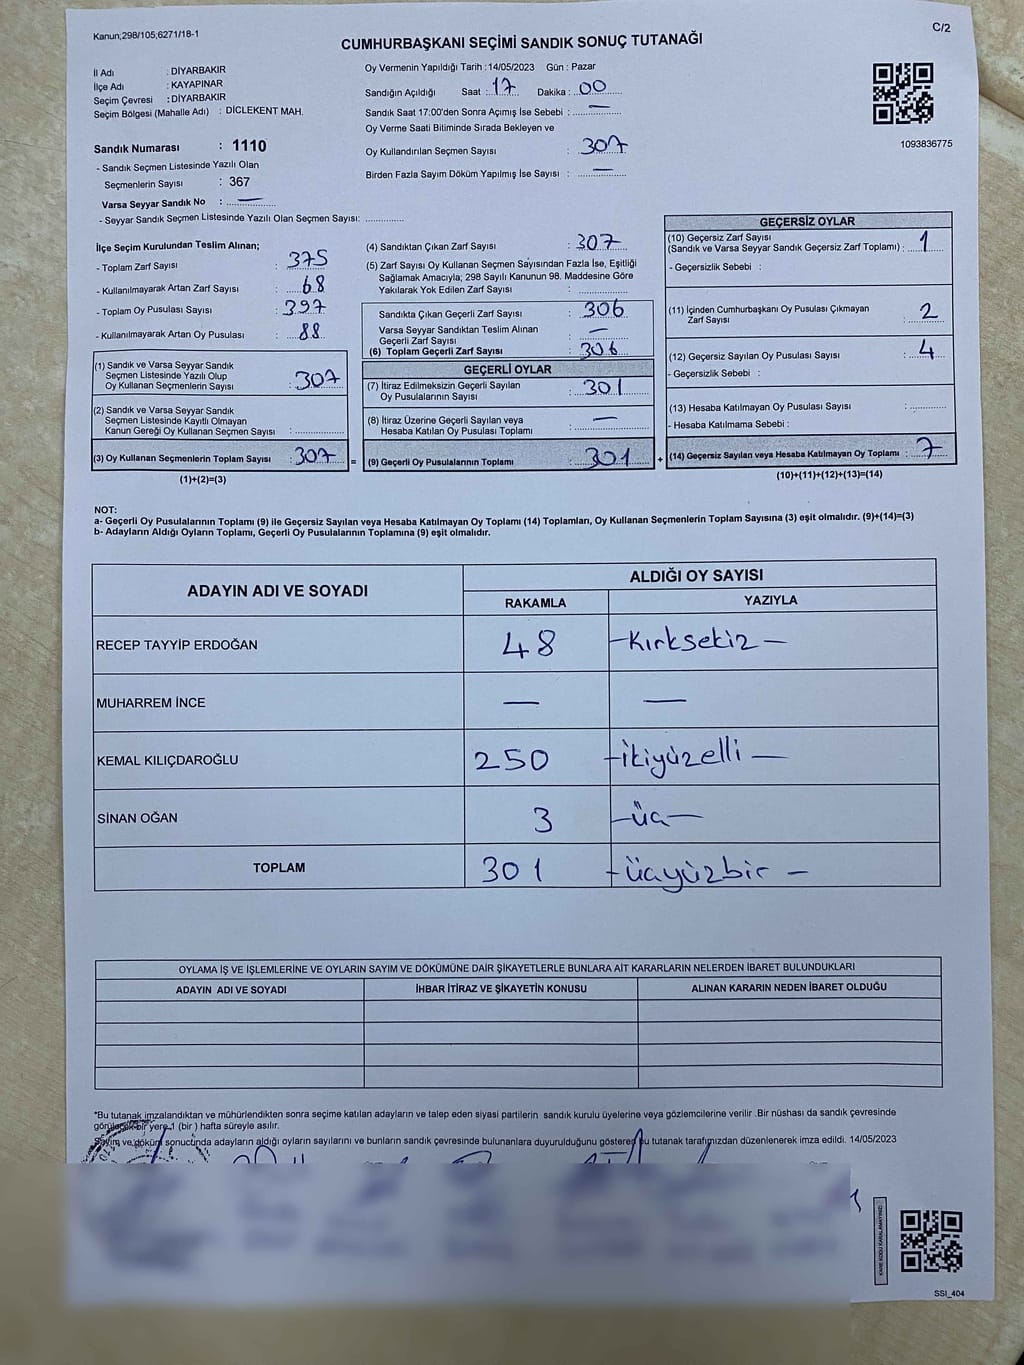 Kanun;298/105;6271/18-1
C/2
CUMHURBAŞKANI SEÇİMİ SANDIK SONUÇ TUTANAĞI
İl Adı : DİYARBAKIR
İlçe Adı : KAYAPINAR
Seçim Çevresi : DİYARBAKIR
Seçim Bölgesi (Mahalle Adı) : DİCLEKENT MAH.
Sandık Numarası : 1110
- Sandık Seçmen Listesinde Yazılı Olan
Seçmenlerin Sayısı : 367
Varsa Seyyar Sandık No : —
- Seyyar Sandık Seçmen Listesinde Yazılı Olan Seçmen Sayısı: ..............
Oy Vermenin Yapıldığı Tarih :14/05/2023 Gün : Pazar
Sandığın Açıldığı Saat : 17 Dakika : 00
Sandık Saat 17:00'den Sonra Açımış İse Sebebi : —
Oy Verme Saati Bitiminde Sırada Bekleyen ve
Oy Kullandırılan Seçmen Sayısı : 307
Birden Fazla Sayım Döküm Yapılmış İse Sayısı : —
1093836775
İlçe Seçim Kurulundan Teslim Alınan;
- Toplam Zarf Sayısı : 375
- Kullanılmayarak Artan Zarf Sayısı : 68
- Toplam Oy Pusulası Sayısı : 397
- Kullanılmayarak Artan Oy Pusulası : 88
(1) Sandık ve Varsa Seyyar Sandık
Seçmen Listesinde Yazılı Olup
Oy Kullanan Seçmenlerin Sayısı : 307
(2) Sandık ve Varsa Seyyar Sandık
Seçmen Listesinde Kayıtlı Olmayan
Kanun Gereği Oy Kullanan Seçmen Sayısı : ..............
(3) Oy Kullanan Seçmenlerin Toplam Sayısı : 307 =
(1)+(2)=(3)
(4) Sandıktan Çıkan Zarf Sayısı : 307
(5) Zarf Sayısı Oy Kullanan Seçmen Sayısından Fazla İse, Eşitliği
Sağlamak Amacıyla; 298 Sayılı Kanunun 98. Maddesine Göre
Yakılarak Yok Edilen Zarf Sayısı : ..............
Sandıkta Çıkan Geçerli Zarf Sayısı : 306
Varsa Seyyar Sandıktan Teslim Alınan
Geçerli Zarf Sayısı : —
(6) Toplam Geçerli Zarf Sayısı : 306
GEÇERLİ OYLAR
(7) İtiraz Edilmeksizin Geçerli Sayılan
Oy Pusulalarının Sayısı : 301
(8) İtiraz Üzerine Geçerli Sayılan veya
Hesaba Katılan Oy Pusulası Toplamı : —
(9) Geçerli Oy Pusulalarının Toplamı : 301 +
GEÇERSİZ OYLAR
(10) Geçersiz Zarf Sayısı
(Sandık ve Varsa Seyyar Sandık Geçersiz Zarf Toplamı) : 1
- Geçersizlik Sebebi :
(11) İçinden Cumhurbaşkanı Oy Pusulası Çıkmayan
Zarf Sayısı : 2
(12) Geçersiz Sayılan Oy Pusulası Sayısı : 4
- Geçersizlik Sebebi :
(13) Hesaba Katılmayan Oy Pusulası Sayısı : ..............
- Hesaba Katılmama Sebebi :
(14) Geçersiz Sayılan veya Hesaba Katılmayan Oy Toplamı : 7
(10)+(11)+(12)+(13)=(14)
NOT:
a- Geçerli Oy Pusulalarının Toplamı (9) ile Geçersiz Sayılan veya Hesaba Katılmayan Oy Toplamı (14) Toplamları, Oy Kullanan Seçmenlerin Toplam Sayısına (3) eşit olmalıdır. (9)+(14)=(3)
b- Adayların Aldığı Oyların Toplamı, Geçerli Oy Pusulalarının Toplamına (9) eşit olmalıdır.
ADAYIN ADI VE SOYADI
ALDIĞI OY SAYISI
RAKAMLA YAZIYLA
RECEP TAYYİP ERDOĞAN 48 -Kırksekiz-
MUHARREM İNCE — —
KEMAL KILIÇDAROĞLU 250 -ikiyüzelli-
SİNAN OĞAN 3 -üç-
TOPLAM 301 -üçyüzbir-
OYLAMA İŞ VE İŞLEMLERİNE VE OYLARIN SAYIM VE DÖKÜMÜNE DAİR ŞİKAYETLERLE BUNLARA AİT KARARLARIN NELERDEN İBARET BULUNDUKLARI
ADAYIN ADI VE SOYADI İHBAR İTİRAZ VE ŞİKAYETİN KONUSU ALINAN KARARIN NEDEN İBARET OLDUĞU
*Bu tutanak imzalandıktan ve mühürlendikten sonra seçime katılan adayların ve talep eden siyasi partilerin sandık kurulu üyelerine veya gözlemcilerine verilir .Bir nüshası da sandık çevresinde
görülecek bir yere 1 (bir ) hafta süreyle asılır.
Sayım ve döküm sonucunda adayların aldığı oyların sayılarını ve bunların sandık çevresinde bulunanlara duyurulduğunu gösteren bu tutanak tarafımızdan düzenlenerek imza edildi. 14/05/2023
KARE KODU KARALAMAYINIZ!
SSI_404